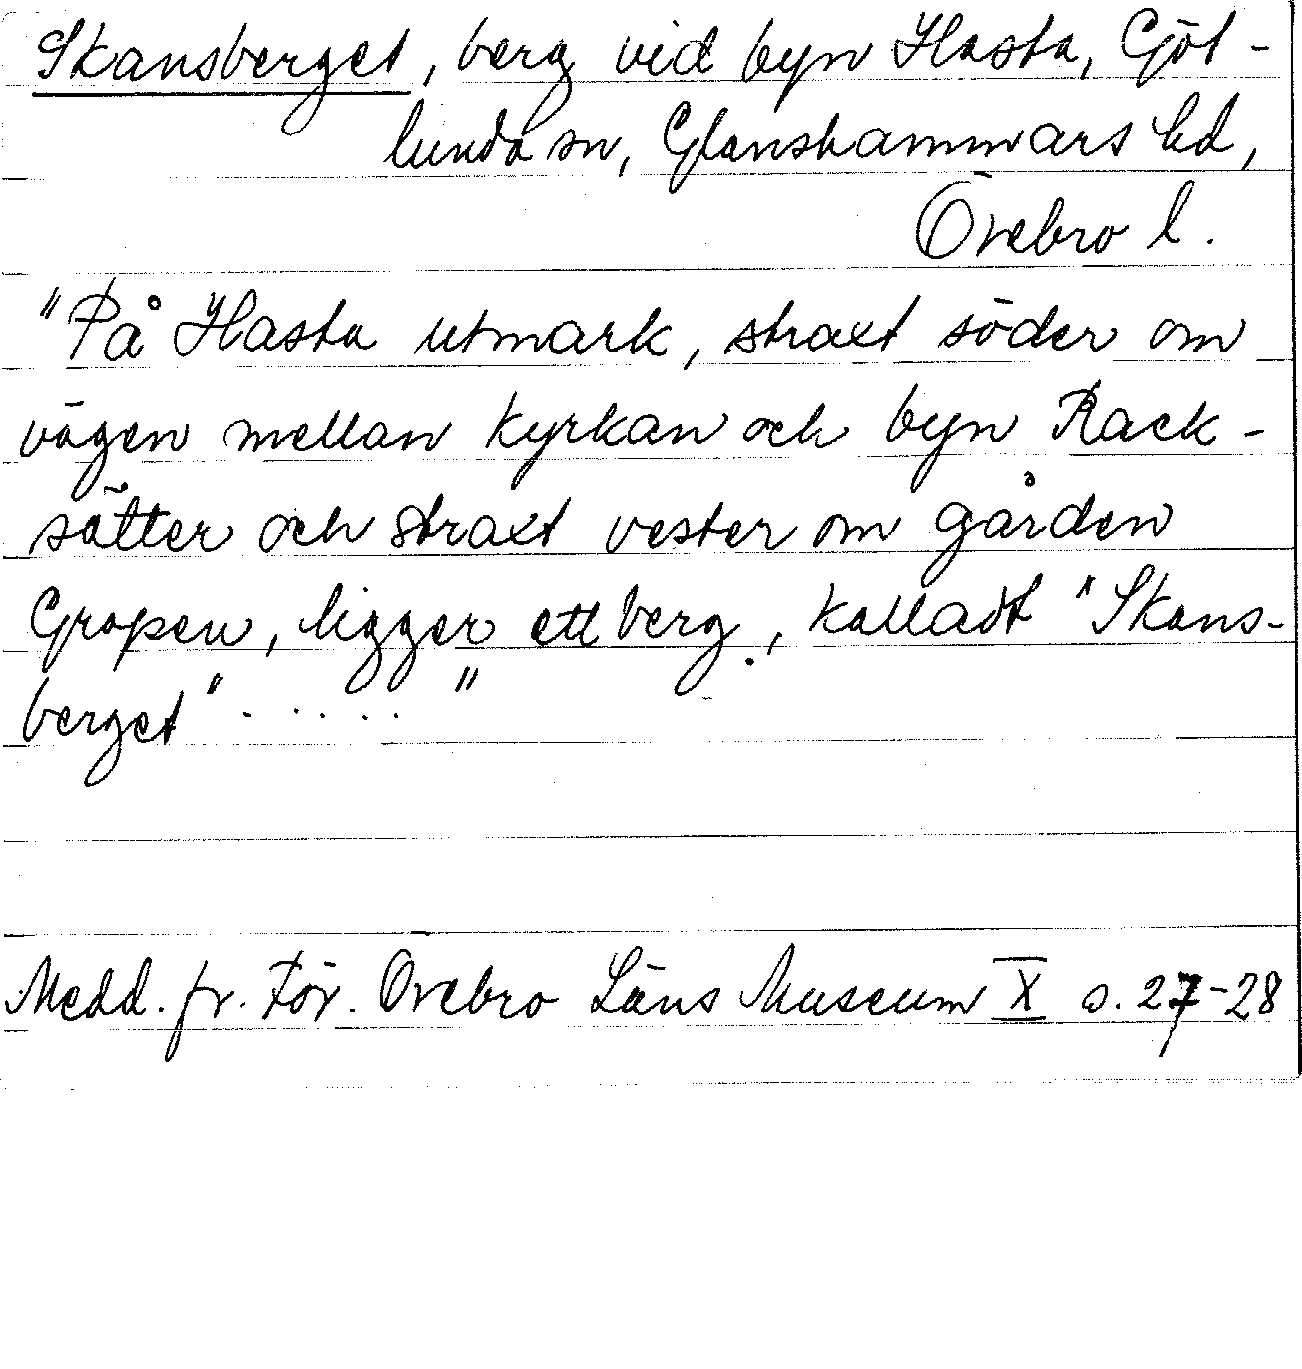 Skansberget, berg vid byn Hasta, Göt-
lunda sn, Glanshammars hd,
Örebro l.
"På Hasta utmark, straxt söder om
vägen mellan kyrkan och byn Rack-
sätter och straxt vester om gården
Gropen, ligger ett berg, kalladt "Skans-
berget" ..... "
Medd. fr. För. Örebro Läns Museum X s. 27-28